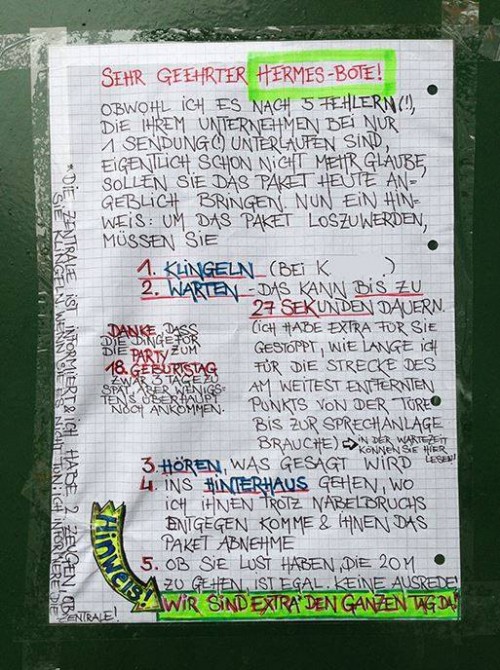 SEHR GEEHRTER HERMES-BOTE!
OBWOHL ICH ES NACH 5 FEHLERN(!),
DIE IHREM UNTERNEHMEN BEI NUR
1 SENDUNG(!) UNTERLAUFEN SIND,
EIGENTLICH SCHON NICHT MEHR GLAUBE,
SOLLEN SIE DAS PAKET HEUTE AN-
GEBLICH BRINGEN. NUN EIN HIN-
WEIS: UM DAS PAKET LOSZUWERDEN,
MÜSSEN SIE
1. KLINGELN (BEI K )
2. WARTEN - DAS KANN BIS ZU
27 SEKUNDEN DAUERN.
(ICH HABE EXTRA FÜR SIE
GESTOPPT, WIE LANGE ICH
FÜR DIE STRECKE DES
AM WEITEST ENTFERNTEN
PUNKTS VON DER TÜRE
BIS ZUR SPRECHANLAGE
BRAUCHE) ⇨ IN DER WARTEZEIT
KÖNNEN SIE HIER
LESEN!
DANKE, DASS
DIE DINGE FÜR
DIE PARTY ZUM
18. GEBURTSTAG
ZWAR 3 TAGE ZU
SPÄT, ABER WENIGS-
TENS ÜBERHAUPT
NOCH ANKOMMEN.
3. HÖREN, WAS GESAGT WIRD
4. INS HINTERHAUS GEHEN, WO
ICH IHNEN TROTZ NABELBRUCHS
ENTGEGEN KOMME & IHNEN DAS
PAKET ABNEHME
5. OB SIE LUST HABEN, DIE 20 M
ZU GEHEN, IST EGAL. KEINE AUSREDE!
Hinweis!
WIR SIND EXTRA DEN GANZEN TAG DA!
* DIE ZENTRALE IST INFORMIERT & ICH HABE 2 ZEUGEN, OB
SIE KLINGELN. WENN SIE ES NICHT TUN: ICH INFORMIERE DIE
ZENTRALE!